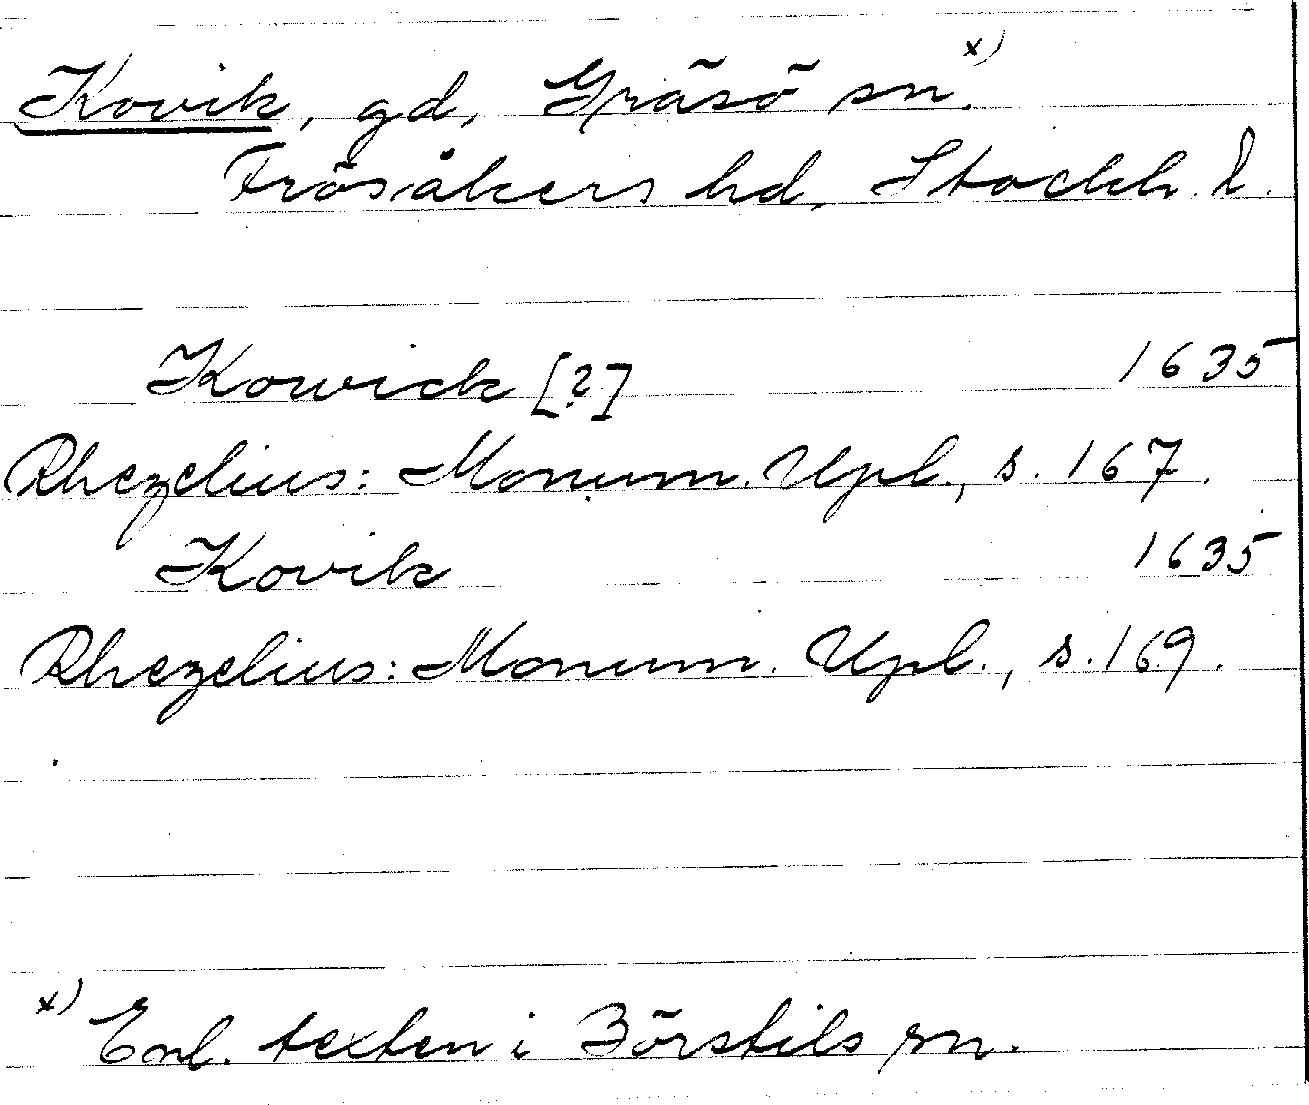 Kovik, gd, Gräsö sn.x)
Frösåkers hd, Stockh. l.
Kowick [?] 1635
Rhezelius: Monum. Upl., s. 167.
Kovik 1635
Rhezelius: Monum. Upl., s. 169.
x) Enl. texten i Börstils sn.